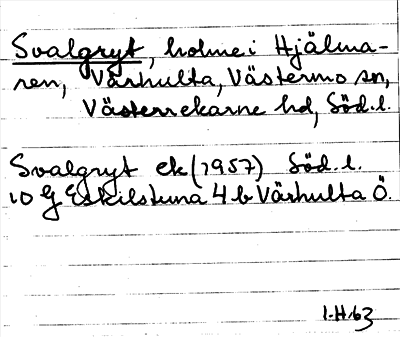 Svalgryt, holme i Hjälma-
ren, Värhulta, Västermo sn,
Västerrekarne hd, Söd. l.
Svalgryt ek (1957) Söd. l.
10 G Eskilstuna 4 b Värhulta Ö.
1.H.63